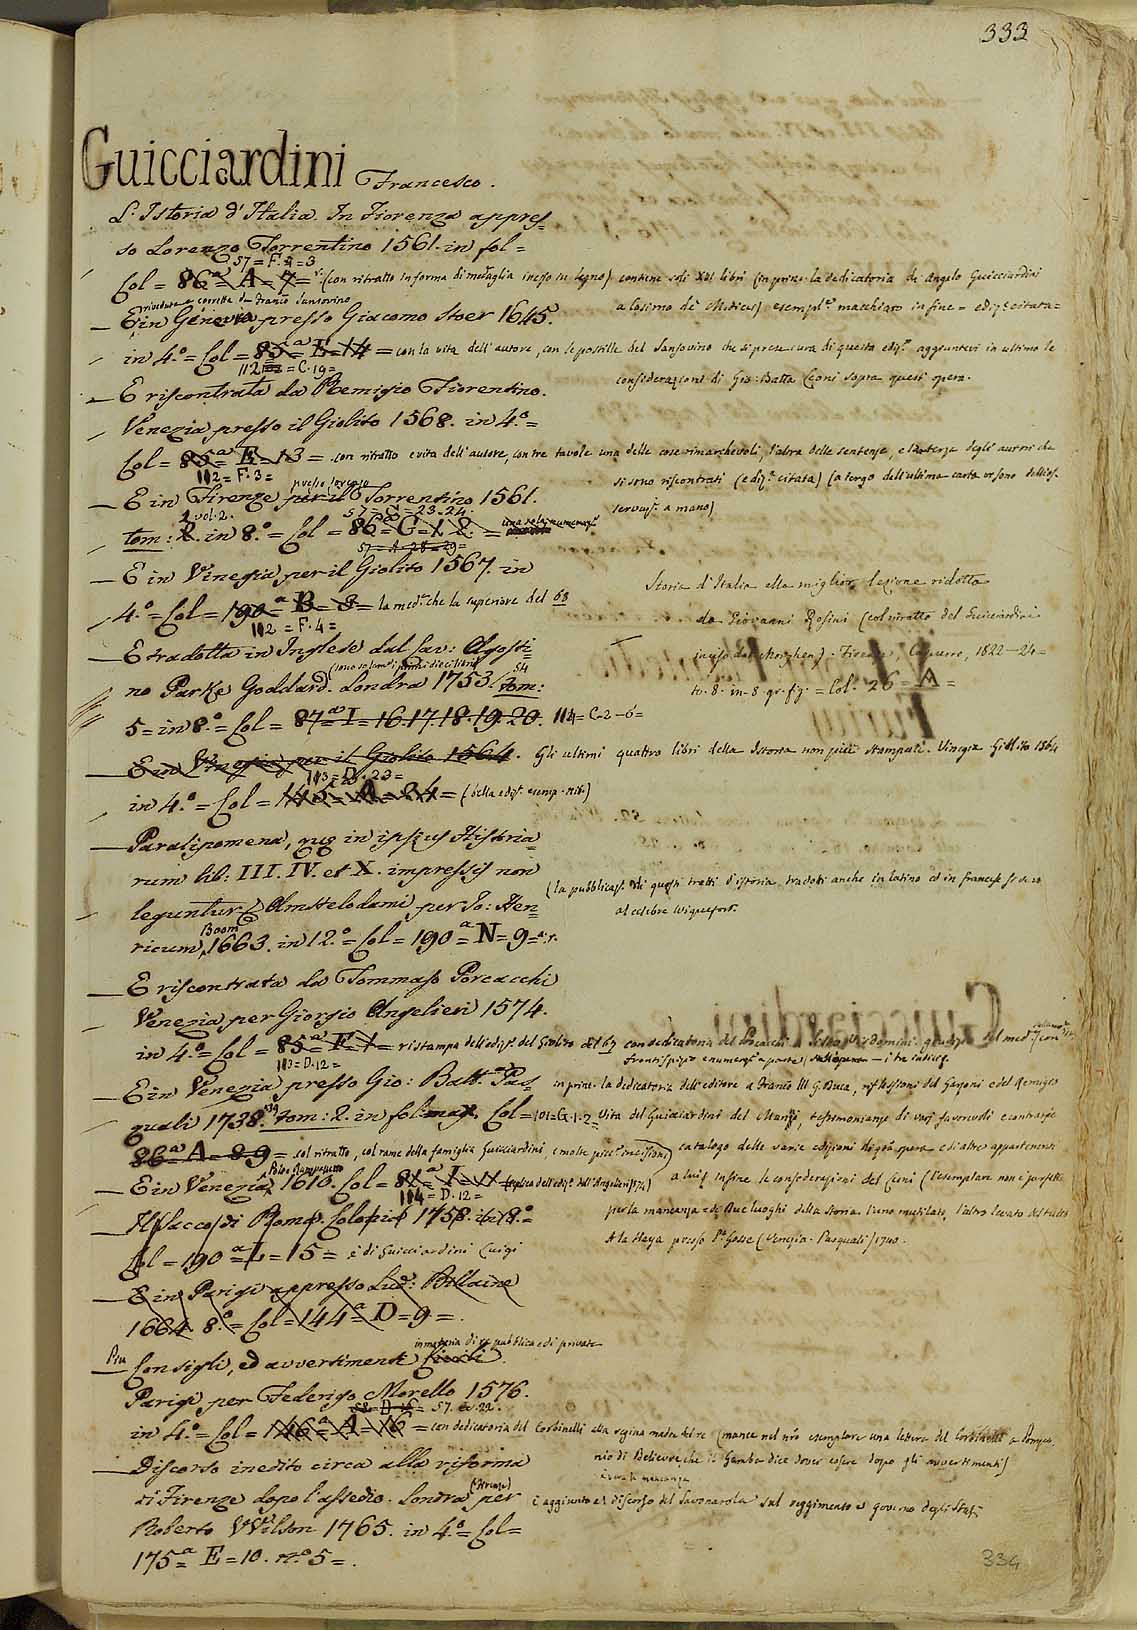 333
Guicciardini Francesco.
L'Istoria d'Italia. In Fiorenza appres=
so Lorenzo Torrentino 1561. in fol=
57=F.2=3
Col= 86ª= A= 7= (con ritratto in forma di medaglia inciso in legno) contiene soli XVI libri (in princ. la dedicatoria di Agnolo Guicciardini
a Cosimo de' Medici) esempl.e macchiato in fine = ediz. citata=
rivedute e corrette da Franco Sansovino
— E in Genevra presso Giacomo Stoer 1645.
in 4.º= Col= 85ª= E=14 = con la vita dell'autore, con le postille del Sansovino che si prese cura di questa ediz.e aggiuntevi in ultimo le
considerazioni di Gio: Batta Leoni sopra quest'opera.
112 = C.19=
— E riscontrata da Remigio Fiorentino.
Venezia presso il Giolito 1568. in 4.º=
Col= 85ª= E=13 = con ritratto e vita dell'autore, con tre tavole una delle cose rimarchevoli, l'altra delle sentenze, e la terza degli autori che
si sono riscontrati (ediz.e citata) (a tergo dell'ultima carta vi sono
a mano)
112= F.3=
presso Lorenzo
— E in Firenze per il Torrentino 1561.
2 vol. 2.
57= G=23=24.
tom: 2. in 8.º= Col= 86ª= G=1. 2. = una sola numeraz.e
57=A=28=29=
— E in Vinegia per il Giolito 1567. in
4.º= Col= 190ª= B= 8= la med.e che la superiore del 68
112= F.4=
Storia d'Italia alla miglior lezione ridotta
da Giovanni Rosini (col ritratto del Guicciardini
inciso dal Morghen). Firenze, Capurro, 1822=24=
to. 8. in 8 gr. fig.= Col. 26= A=
— E tradotta in Inglese dal Cav: Agosti=
(sono solam.e i primi dieci libri)
no Parke Goddard. Londra 1753. 54 tom:
5= in 8.º= Col= 87ª= I=16.17.18.19.20. 114=C.2=6=
— E in Vinegia per il Giolito 1564. Gli ultimi quattro libri della Istoria non più stampati. Vinegia Giolito 1564
113=D.23=
in 4.º= Col= 145ª= A=24= (bella ediz.e esemp. nit.)
— Paralipomena, quę in ipsius Historia=
rum lib: III. IV. et X. impressis non
leguntur. Amstelodami per Jo: Hen=
Boom
ricum, 1663. in 12.º= Col= 190ª= N=9=
(la pubblicaz. di questi tratti d'istoria tradotti anche in latino ed in francese si deve
al celebre Wiquefort.
— E riscontrata da Tommaso Porcacchi
Venezia per Giorgio Angelieri 1574.
in 4.º= Col= 85ª= E=1= ristampa dell'ediz.e del Giolito del 67 con dedicatoria del Porcacchi
frontispizio e numeraz.e a parte — i tre indici.
113=D.12=
— E in Venezia presso Gio: Batt.a Pas=
quali 1738. 739 tom: 2. in fol: max. Col=101=G.1.2=
86ª= A= 8.9= col ritratto, col rame della famiglia Guicciardini,
in princ. la dedicatoria dell'editore a Franco III G. Duca, riflessioni del Garzoni e del Remigio
Vita del Guicciardini del Manni, testimonianze di varj favorevoli e contrarje
catalogo delle varie edizioni di qta opera e di altre appartenenti
a lui, infine le considerazioni del Leoni (l'esemplare non è perfetto
per la mancanza di due luoghi della Storia l'uno mutilato, l'altro levato del tutto
A la Haya presso P. Gosse (Venezia. Pasquali) 1740.
Polo
— E in Venezia 1610. Col= 85ª= I= (replica dell'ediz.e dell'Angelieri 1574)
114= D.12=
Il Sacco di Roma. Colonia 1758. in 8.º=
Col= 190ª= L=15= è di Guicciardini Luigi
— E in Parigi appresso Lud: Billaine
1664. 8.º= Col= 144ª= D=9=.
in materia di repubblica e di privato
Più Consigli, ed avvertimenti Civili.
Parigi per Federigo Morello 1576.
58 D 16= 57. 22.
in 4.º= Col= 146ª= A=16= con dedicatoria del Corbinelli alla regina madre del re (manca nel nr̃o esemplare una lettera del Corbinelli a Pompo=
nio di Believre che il Gamba dice dover essere dopo gli avvertimenti)
— Discorso inedito circa alla riforma
di Firenze dopo l'assedio. Londra (Firenze) per
Roberto Wilson 1765. in 4.º= Col=
175ª= E=10. nº.5=.
è aggiunto il discorso del Savonarola sul reggimento e governo degli Stati
334